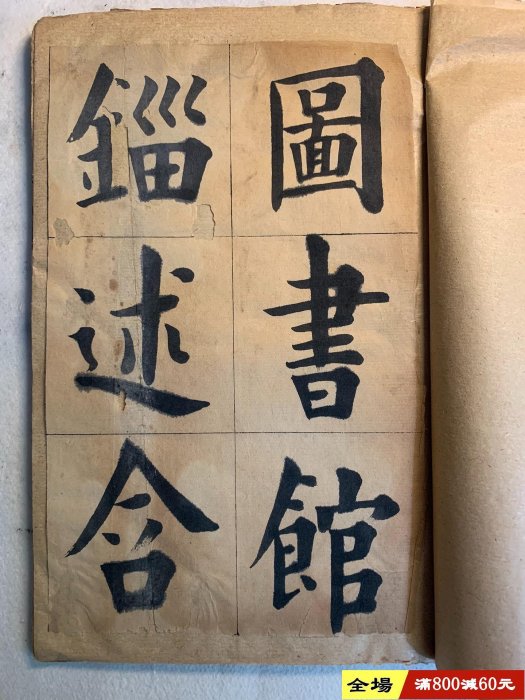 圖書館
錙述含
全場 滿800減60元